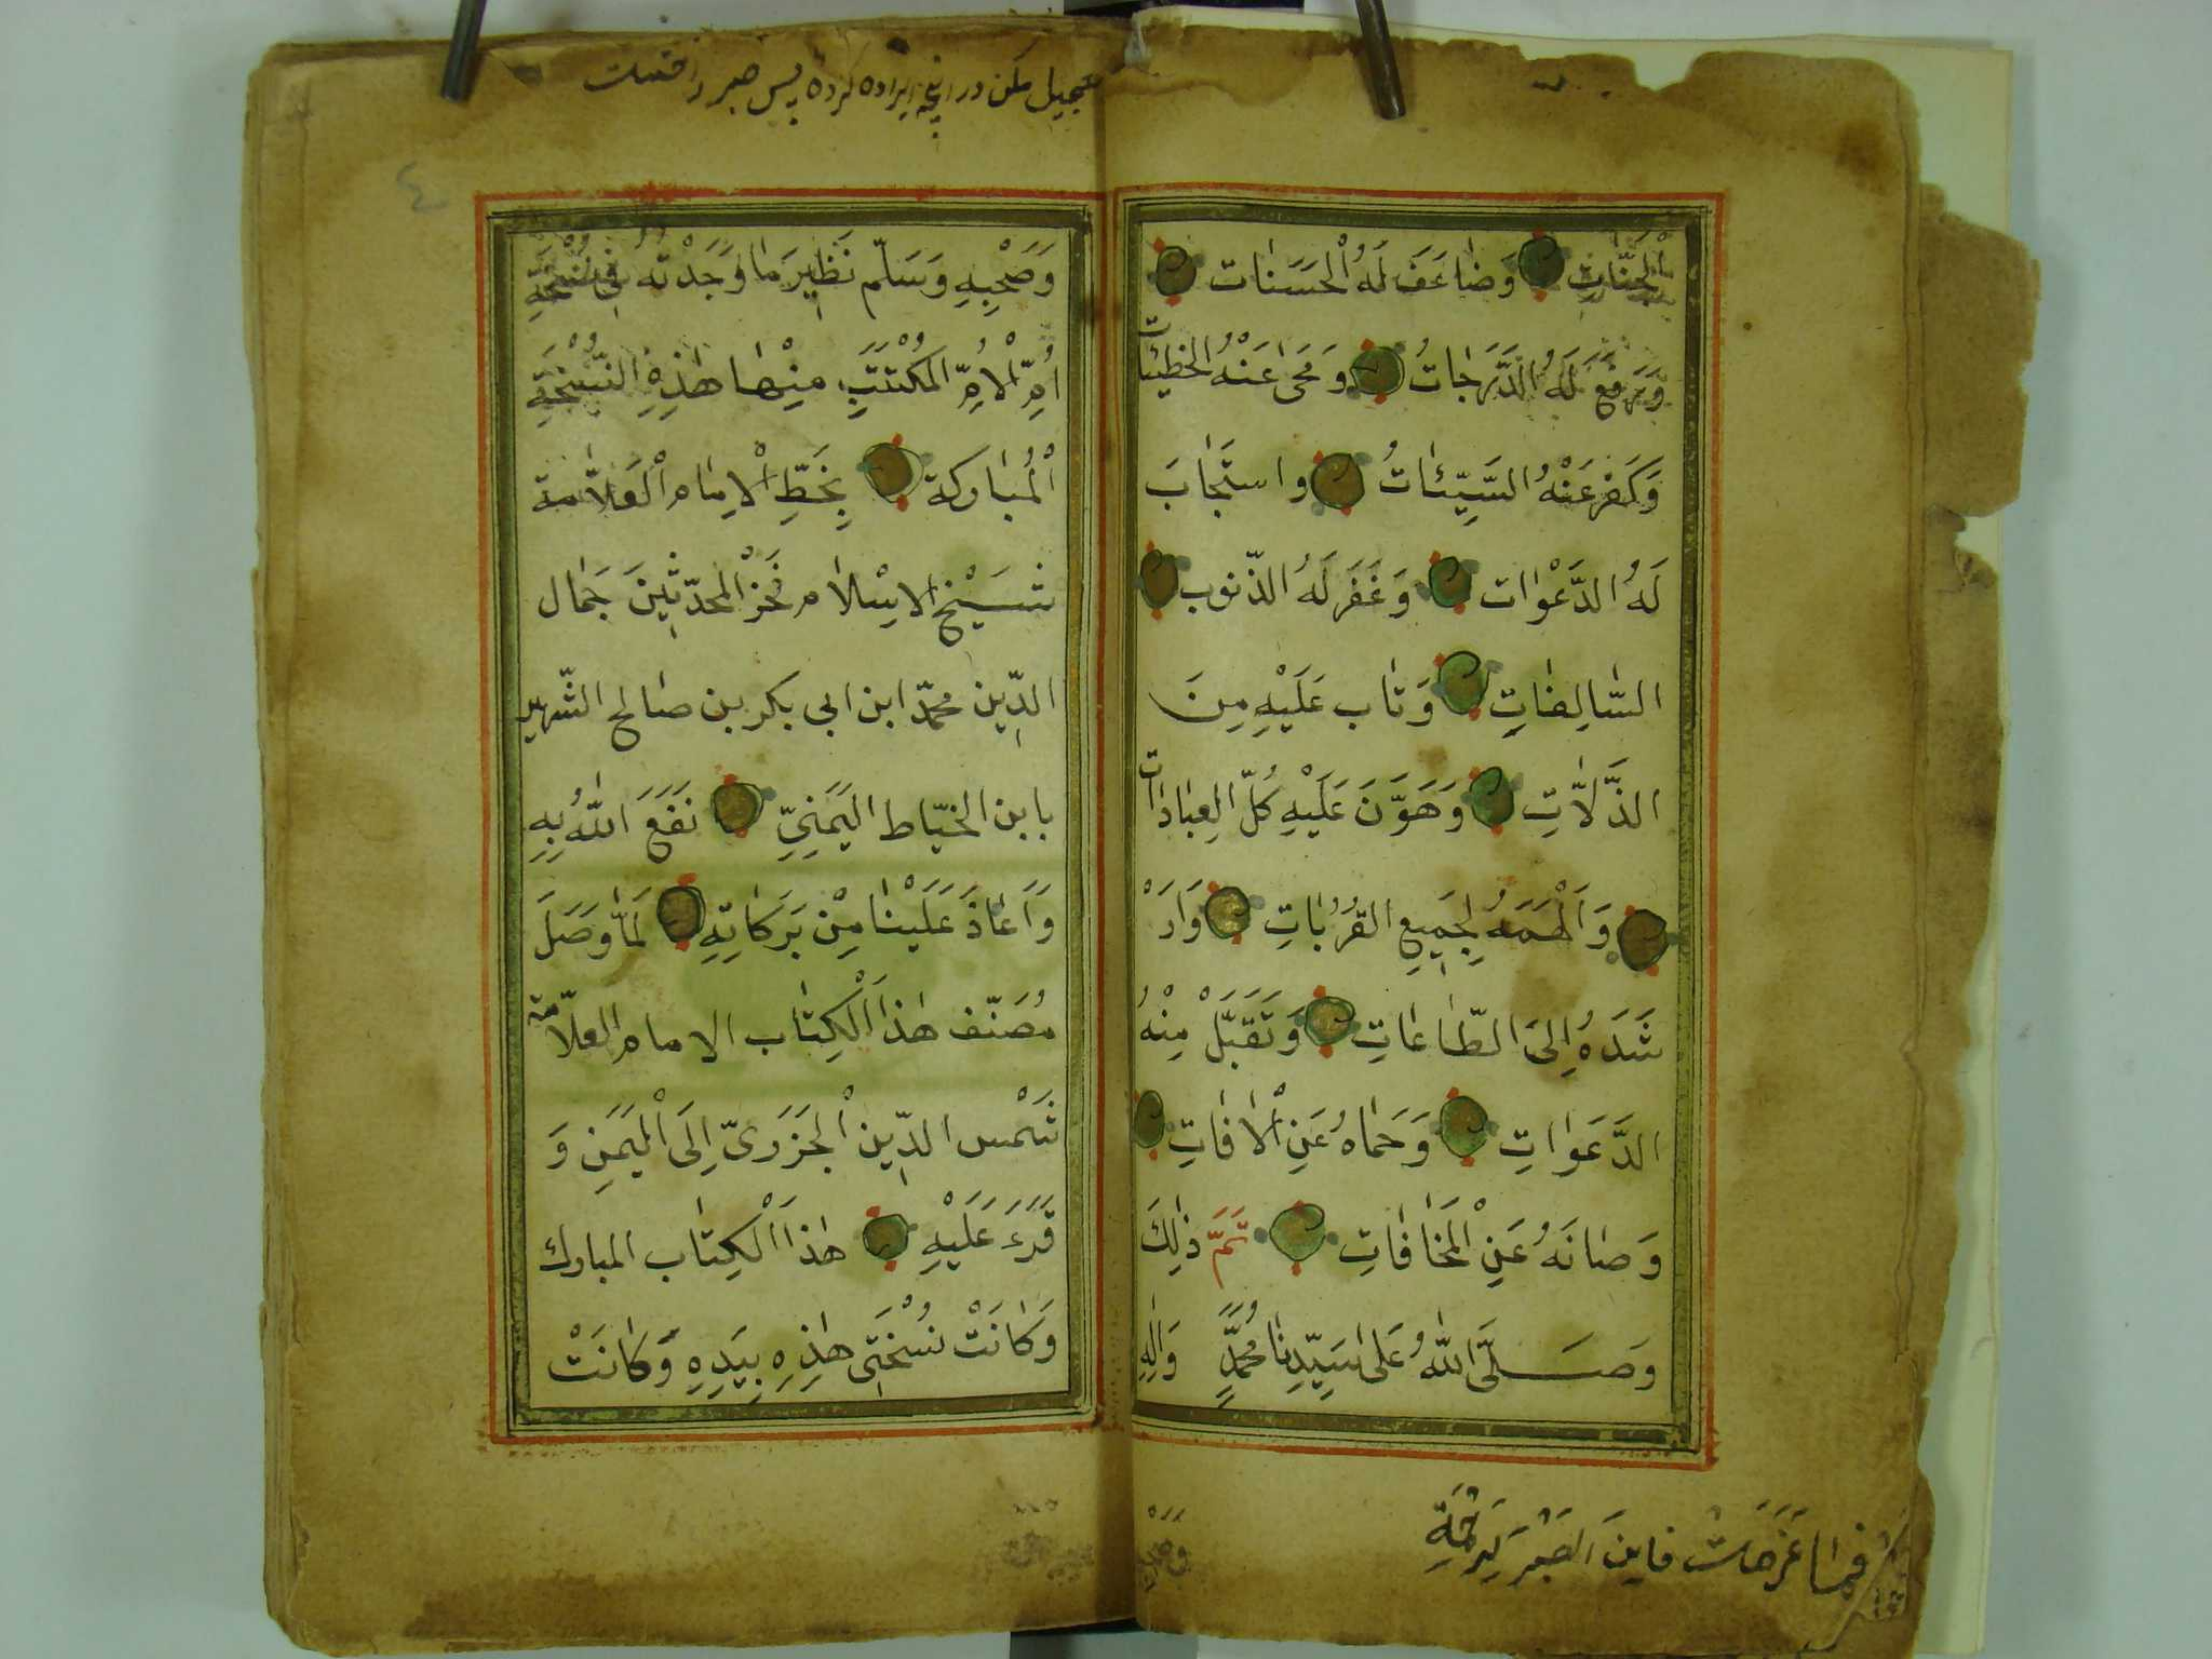 الْجَنَّاتِ وَضَاعَفَ لَهُ الْحَسَنَات
وَرَفَعَ لَهُ الدَّرَجَاتُ وَمَحَى عَنْهُ الخَطِيئات
وَكَفَّرَ عَنْهُ السَّيِّئَاتُ وَاسْتَجَابَ
لَهُ الدَّعْوَات وَغَفَرَ لَهُ الذّنوب
السَّالِفَاتِ وَتَاب عَلَيْهِ مِنَ
الذَّلاَّتِ وَهَوَّنَ عَلَيْهِ كُلّ العِبَادَات
وَأَلْهَمَهُ لِجَمِيعِ القُرُبَاتِ وَاَرْ
شَدَهُ إِلىَ الطَّاعَاتِ وَتَقَبَّلْ مِنْهُ
الدَّعَوَاتِ وَحَمَاهُ عَنِ الْاٰفَاتِ
وَصَانَهُ عَنِ الْمَخَافَاتِ تَمَّ ذٰلِكَ
وَصَلَّى اللّٰهُ عَلىٰ سَيِّدِنَا مُحَمَّدٍ وَاٰلِهِ
فِيمَا عَزَمْتَ فَاِنَ الصَبْرَ
تعجيل مكن در انچه اراده كرده پس صبر را
٤
وَصَحْبِهِ وَسَلّم نَظِيرَ مَا وَجَدْتُهُ فِى نُسْخَةِ
اُمِّ الْاُمِّ الْمُكْتَتَبِ مِنْهَا هٰذِهِ النُّسْخَةِ
الْمُبَاركة بِخَطِّ الْاِمَام الْعَلاَّمة
شَيْخ الاِسْلاَم فَخْر الْمُحَدّثِينَ جَمَال
الدِّين محمّد ابن ابى بكر بن صالح الشّهير
بابن الخيّاط اليَمَنِىّ نَفَعَ اللّٰهُ بِهِ
وَاَعَاذَ عَلَيْنَا مِنْ بَرَكَاتِهِ لَمَّا وَصَلَ
مُصَنّف هٰذَا الْكِتَاب الامام العلاّمة
شَمْس الدِّين الْجَزَرِىّ اِلَى الْيَمَنِ وَ
قَرَءَ عَلَيْهِ هٰذَا الْكِتَاب المبارك
وَكَانَتْ نُسْخَتِى هٰذِهِ بِيَدِهِ وَكَانَتْ